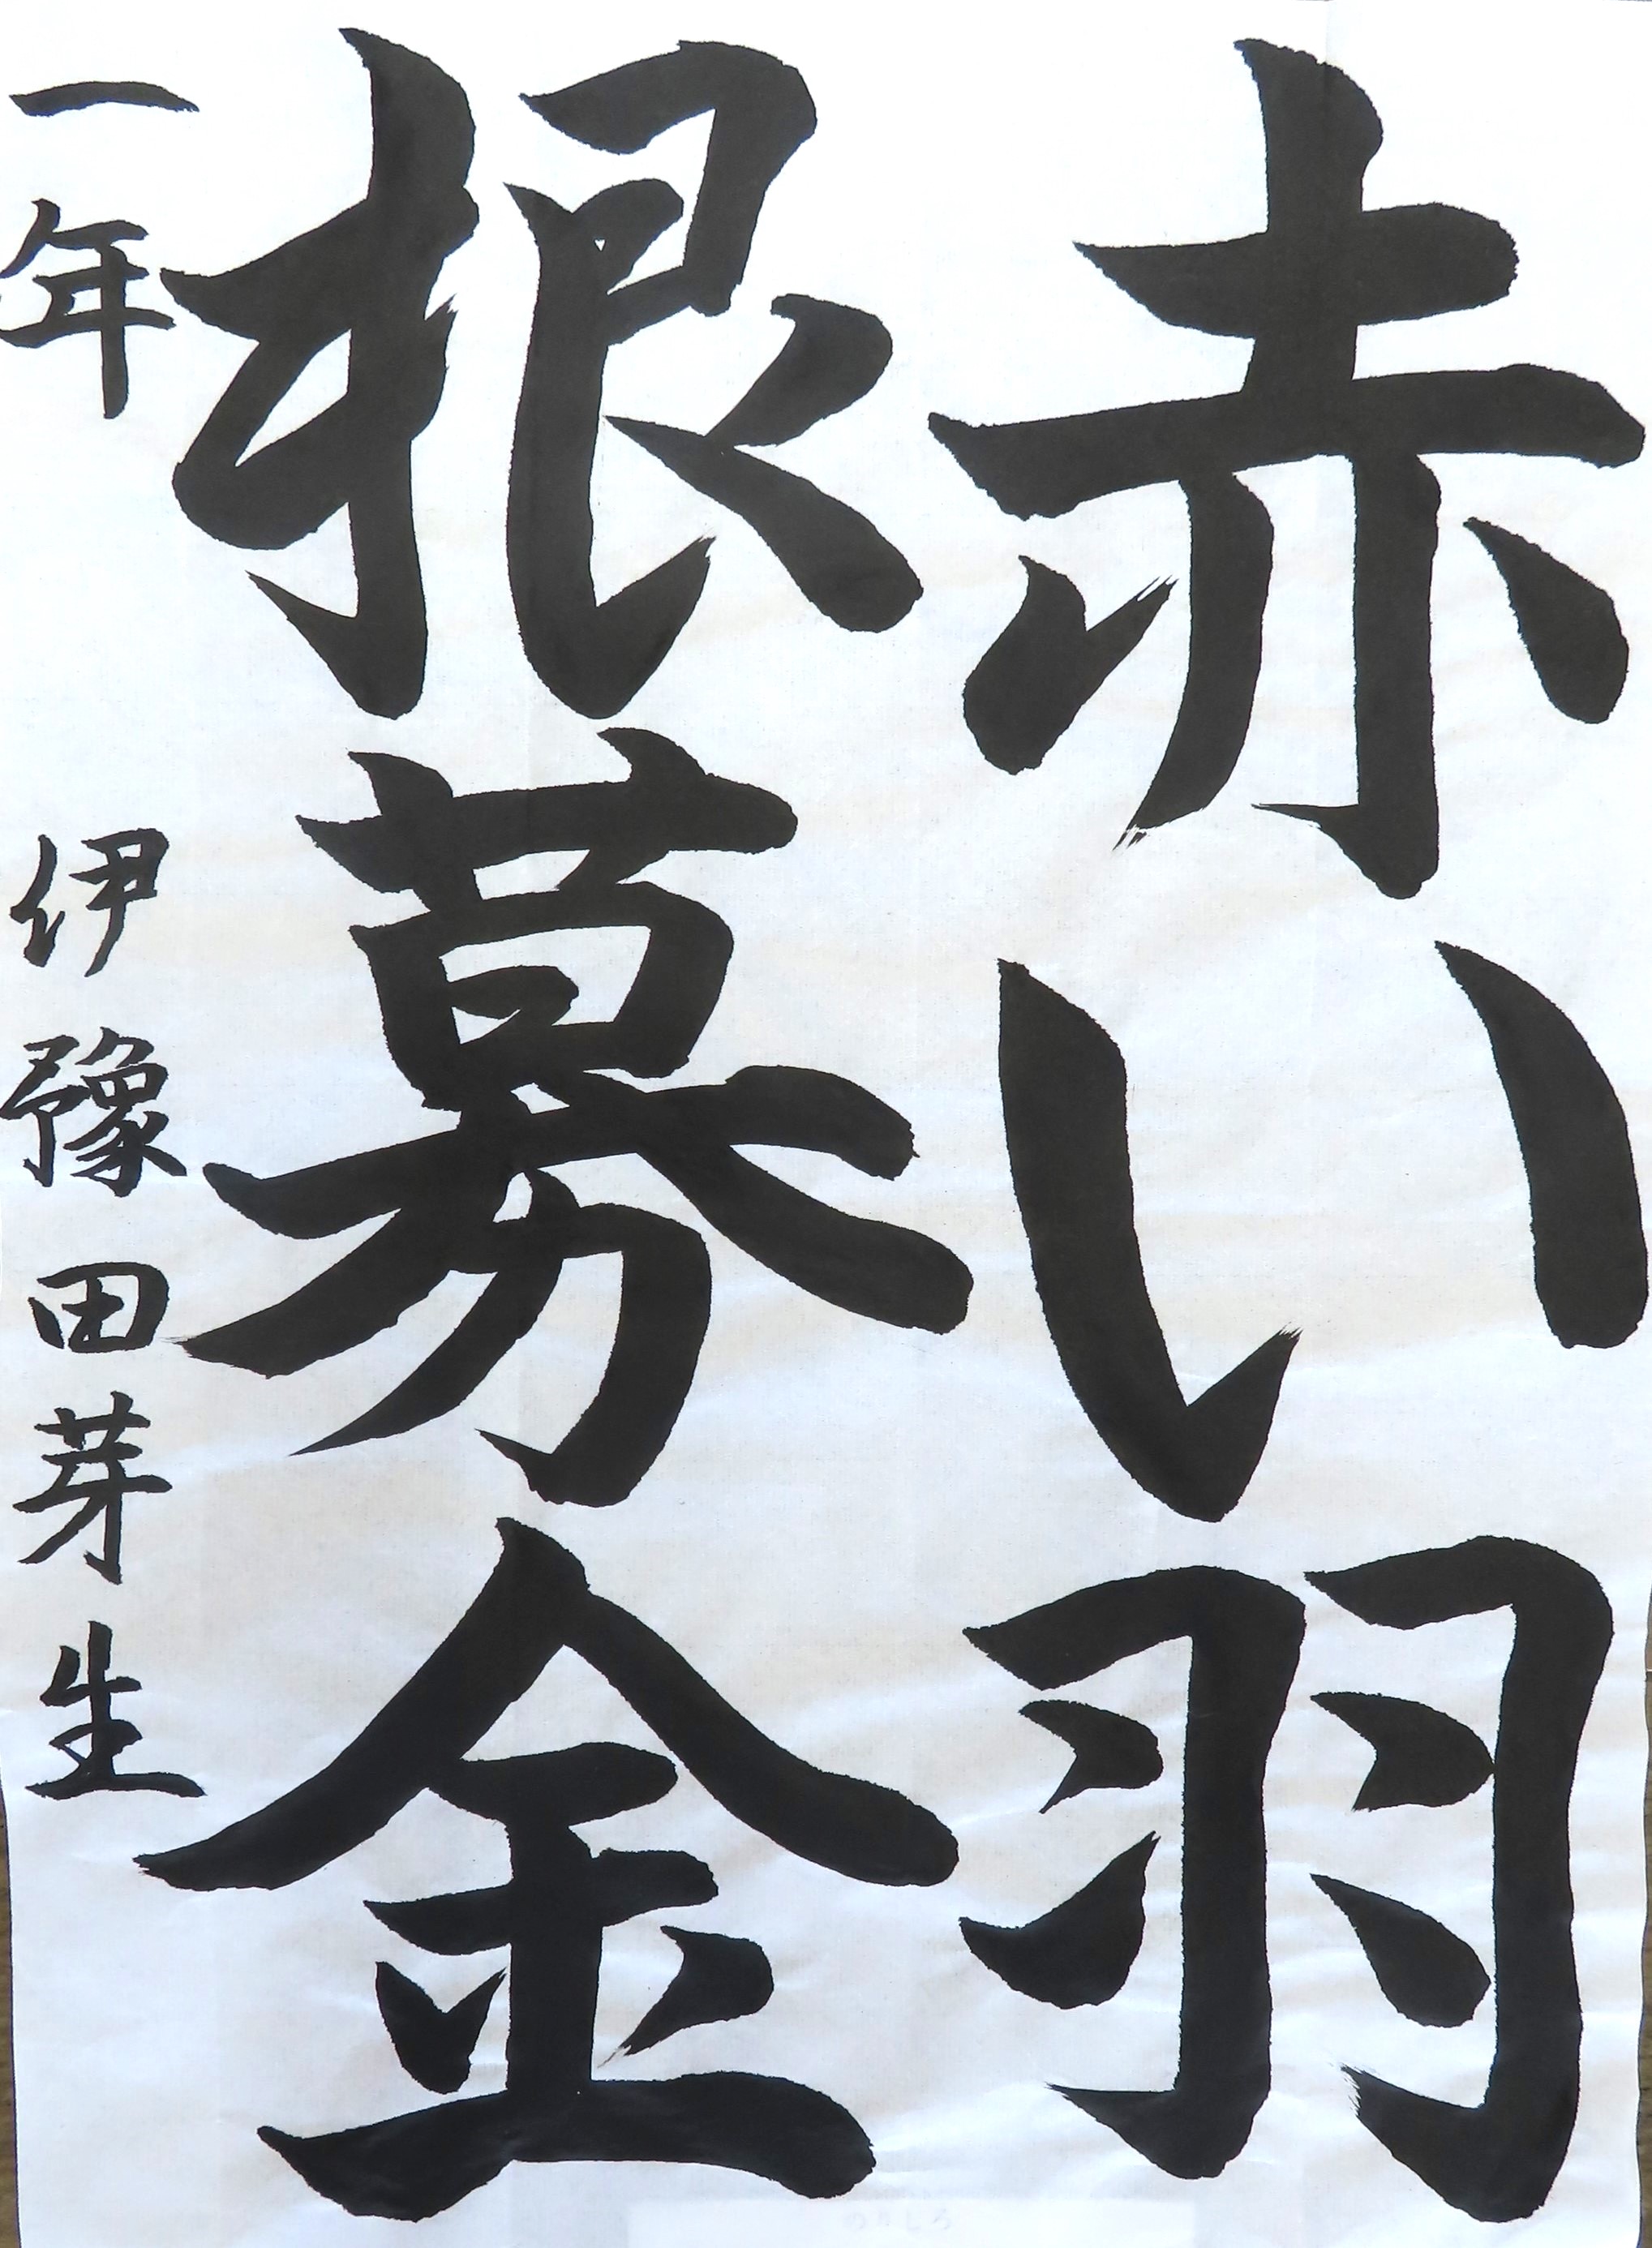 赤い羽
根募金
一年 伊豫田芽生